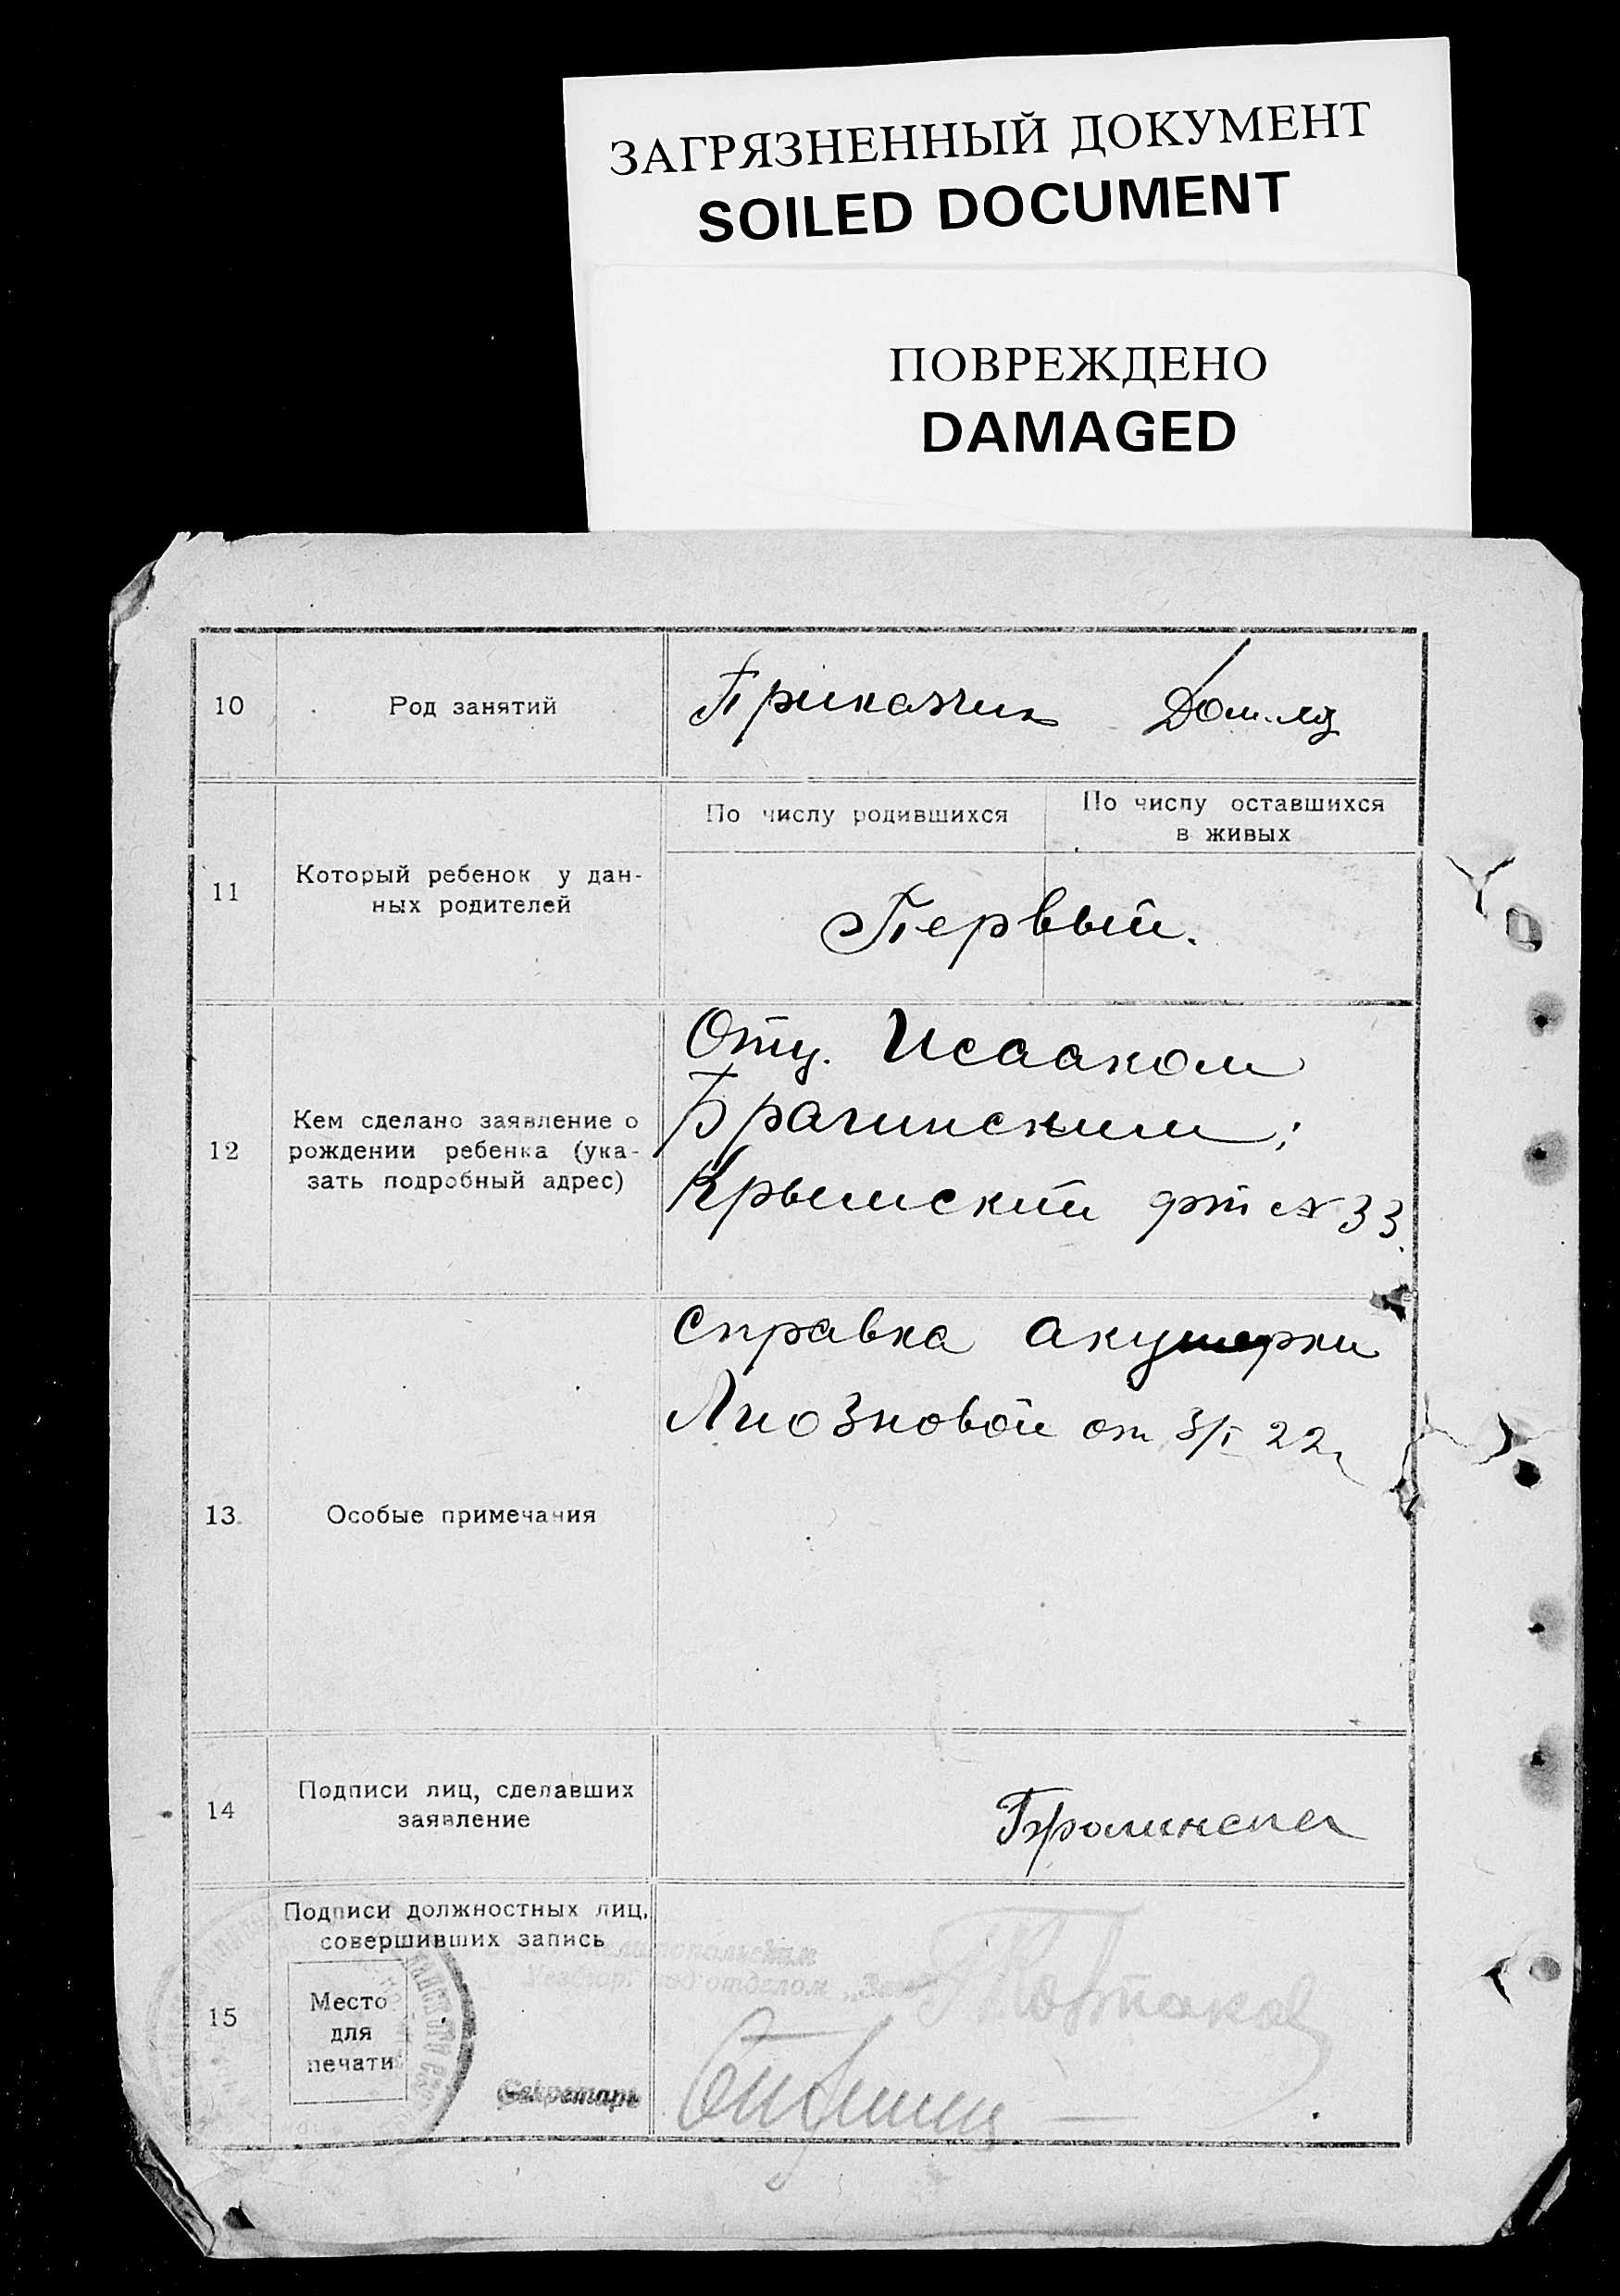 ЗАГРЯЗНЕННЫЙ ДОКУМЕНТ
SOILED DOCUMENT
ПОВРЕЖДЕНО
DAMAGED
10 Род занятий Приказчик
11 Который ребенок у дан-
ных родителей
По числу родившихся
По числу оставшихся
в живых
Первый.
12 Кем сделано заявление о
рождении ребенка (ука-
зать подробный адрес)
Отц. Исааком
Брагинским;
Крымский № 33.
13 Особые примечания
Справка акушерки
Лиозновой от 3/I 22
14 Подписи лиц, сделавших
заявление
15 Подписи должностных лиц,
совершивших запись
отделом
Место
для
печати
Секретарь